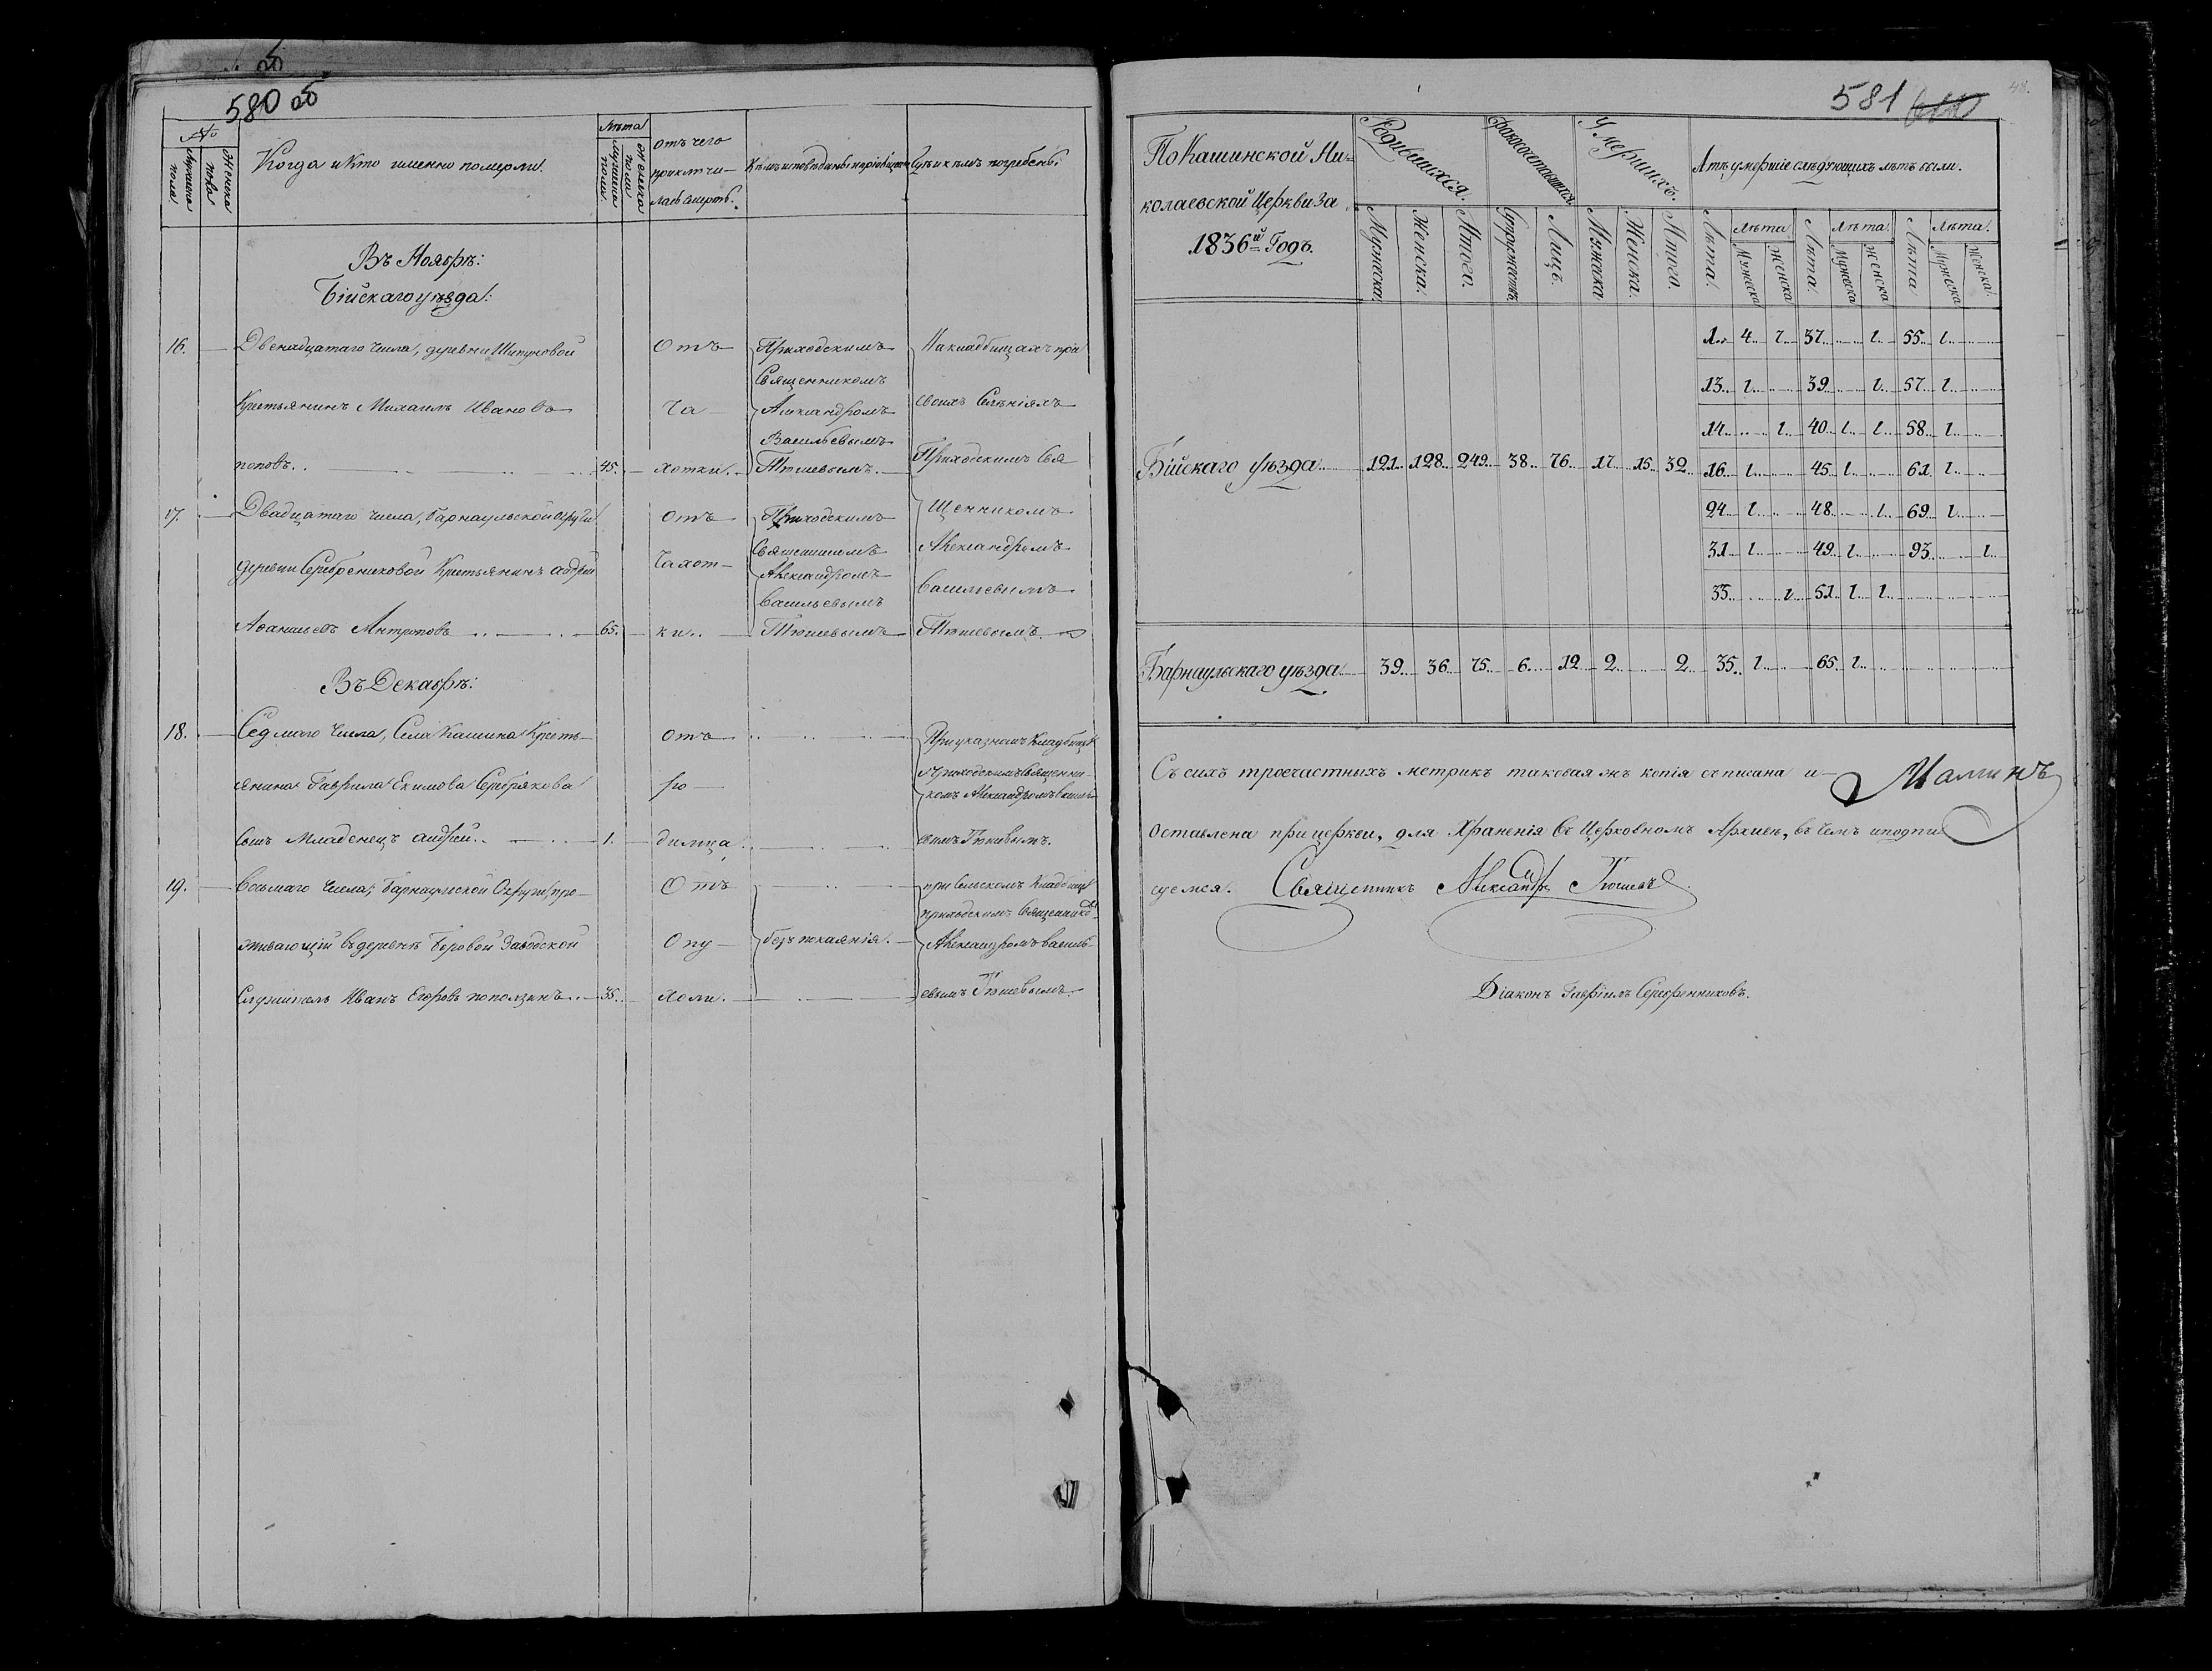 580 об
№
Мужеска пола
Женска пола
Когда и Кто именно померли.
Лѣта
Мужеска пола
Женска пола
отъ чего
приключи–
лась смерть.
Кѣмъ исповѣданы и пріобщены
Гдѣ и кѣмъ погребены
Въ Ноябрѣ:
Бійскаго уѣзда:
16. Двенадцатаго Числа, деревни Шипуновой
Крестьянинъ Михаилъ Ивановъ
поповъ. 45.
Отъ
Ча–
хотки.
Приходскимъ
Священникомъ
Александромъ
Васильевымъ
Тюшевымъ.
На кладбищахъ при
своихъ Селеніяхъ
Приходскимъ Свя
щенникомъ
Александромъ
Васильевымъ
Тюшевымъ.
17. Двадцатаго Числа, Барнаульской округи
деревни Серебрениковой Крестьянинъ андрей
Афанасьевъ Антроповъ 65.
Отъ
Чахот–
ки.
Приходскимъ
Священникомъ
Александромъ
Васильевымъ
Тюшевымъ
Въ Декабрѣ:
18. Седмаго Числа, Села Кашина Кресть–
янина Гаврила Екимова Серебрякова
сынъ Младенецъ андрей. 1.
Отъ
ро–
димца.
При указномъ Кладбище
приходскимъ Священни–
комъ Александромъ Василь–
евымъ Тюшевымъ.
19. Восьмаго Числа, Барнаульской Округи про–
живающій въ деревнѣ Боровой Заводской
Служитель Иванъ Егоровъ поползинъ. 35.
Отъ
Опу–
холи.
безъ покаянія.
при Сельскомъ Кладбище
приходскимъ Священнико
Александромъ Василь–
евымъ Тюшевымъ.
581
48.
По Кашинской Ни–
колаевской Церкви За
1836й Годъ.
Родившихся.
Мужеска.
Женска.
Итого.
бракосочетавшихся
Супружествъ.
Лицъ.
Умершихъ.
Мужеска
Женска.
Итого.
А тѣ умершіе слѣдующихъ лѣтъ были.
Лѣта. Лѣта. Мужеска Женска
Лѣта. Лѣта. Мужеска Женска
Лѣта Лѣта. Мужеска Женска.
1. 4. 1. 37. 1. 55. 1.
13. 1. 39. 1. 57. 1.
14. 1. 40. 1. 1. 58. 1.
Бійскаго уѣзда 121. 128. 249. 38. 76. 17. 15. 32. 16. 1. 45. 1. 61. 1.
24. 1. 48. 1. 69. 1.
31. 1. 49. 1. 93. 1.
35. 1. 51. 1. 1.
Барнаульскаго уѣзда 39. 36. 75. 6. 12. 2. 2. 35. 1. 65. 1.
Съ сихъ троечастныхъ метрикъ таковая жъ копія списана и
оставлена при церкви, для Храненія въ Церковномъ Архивѣ, въ чемъ и подпи
суемся. Священникъ Александръ Тюшевъ.
Діаконъ Гавріилъ Серебренниковъ.